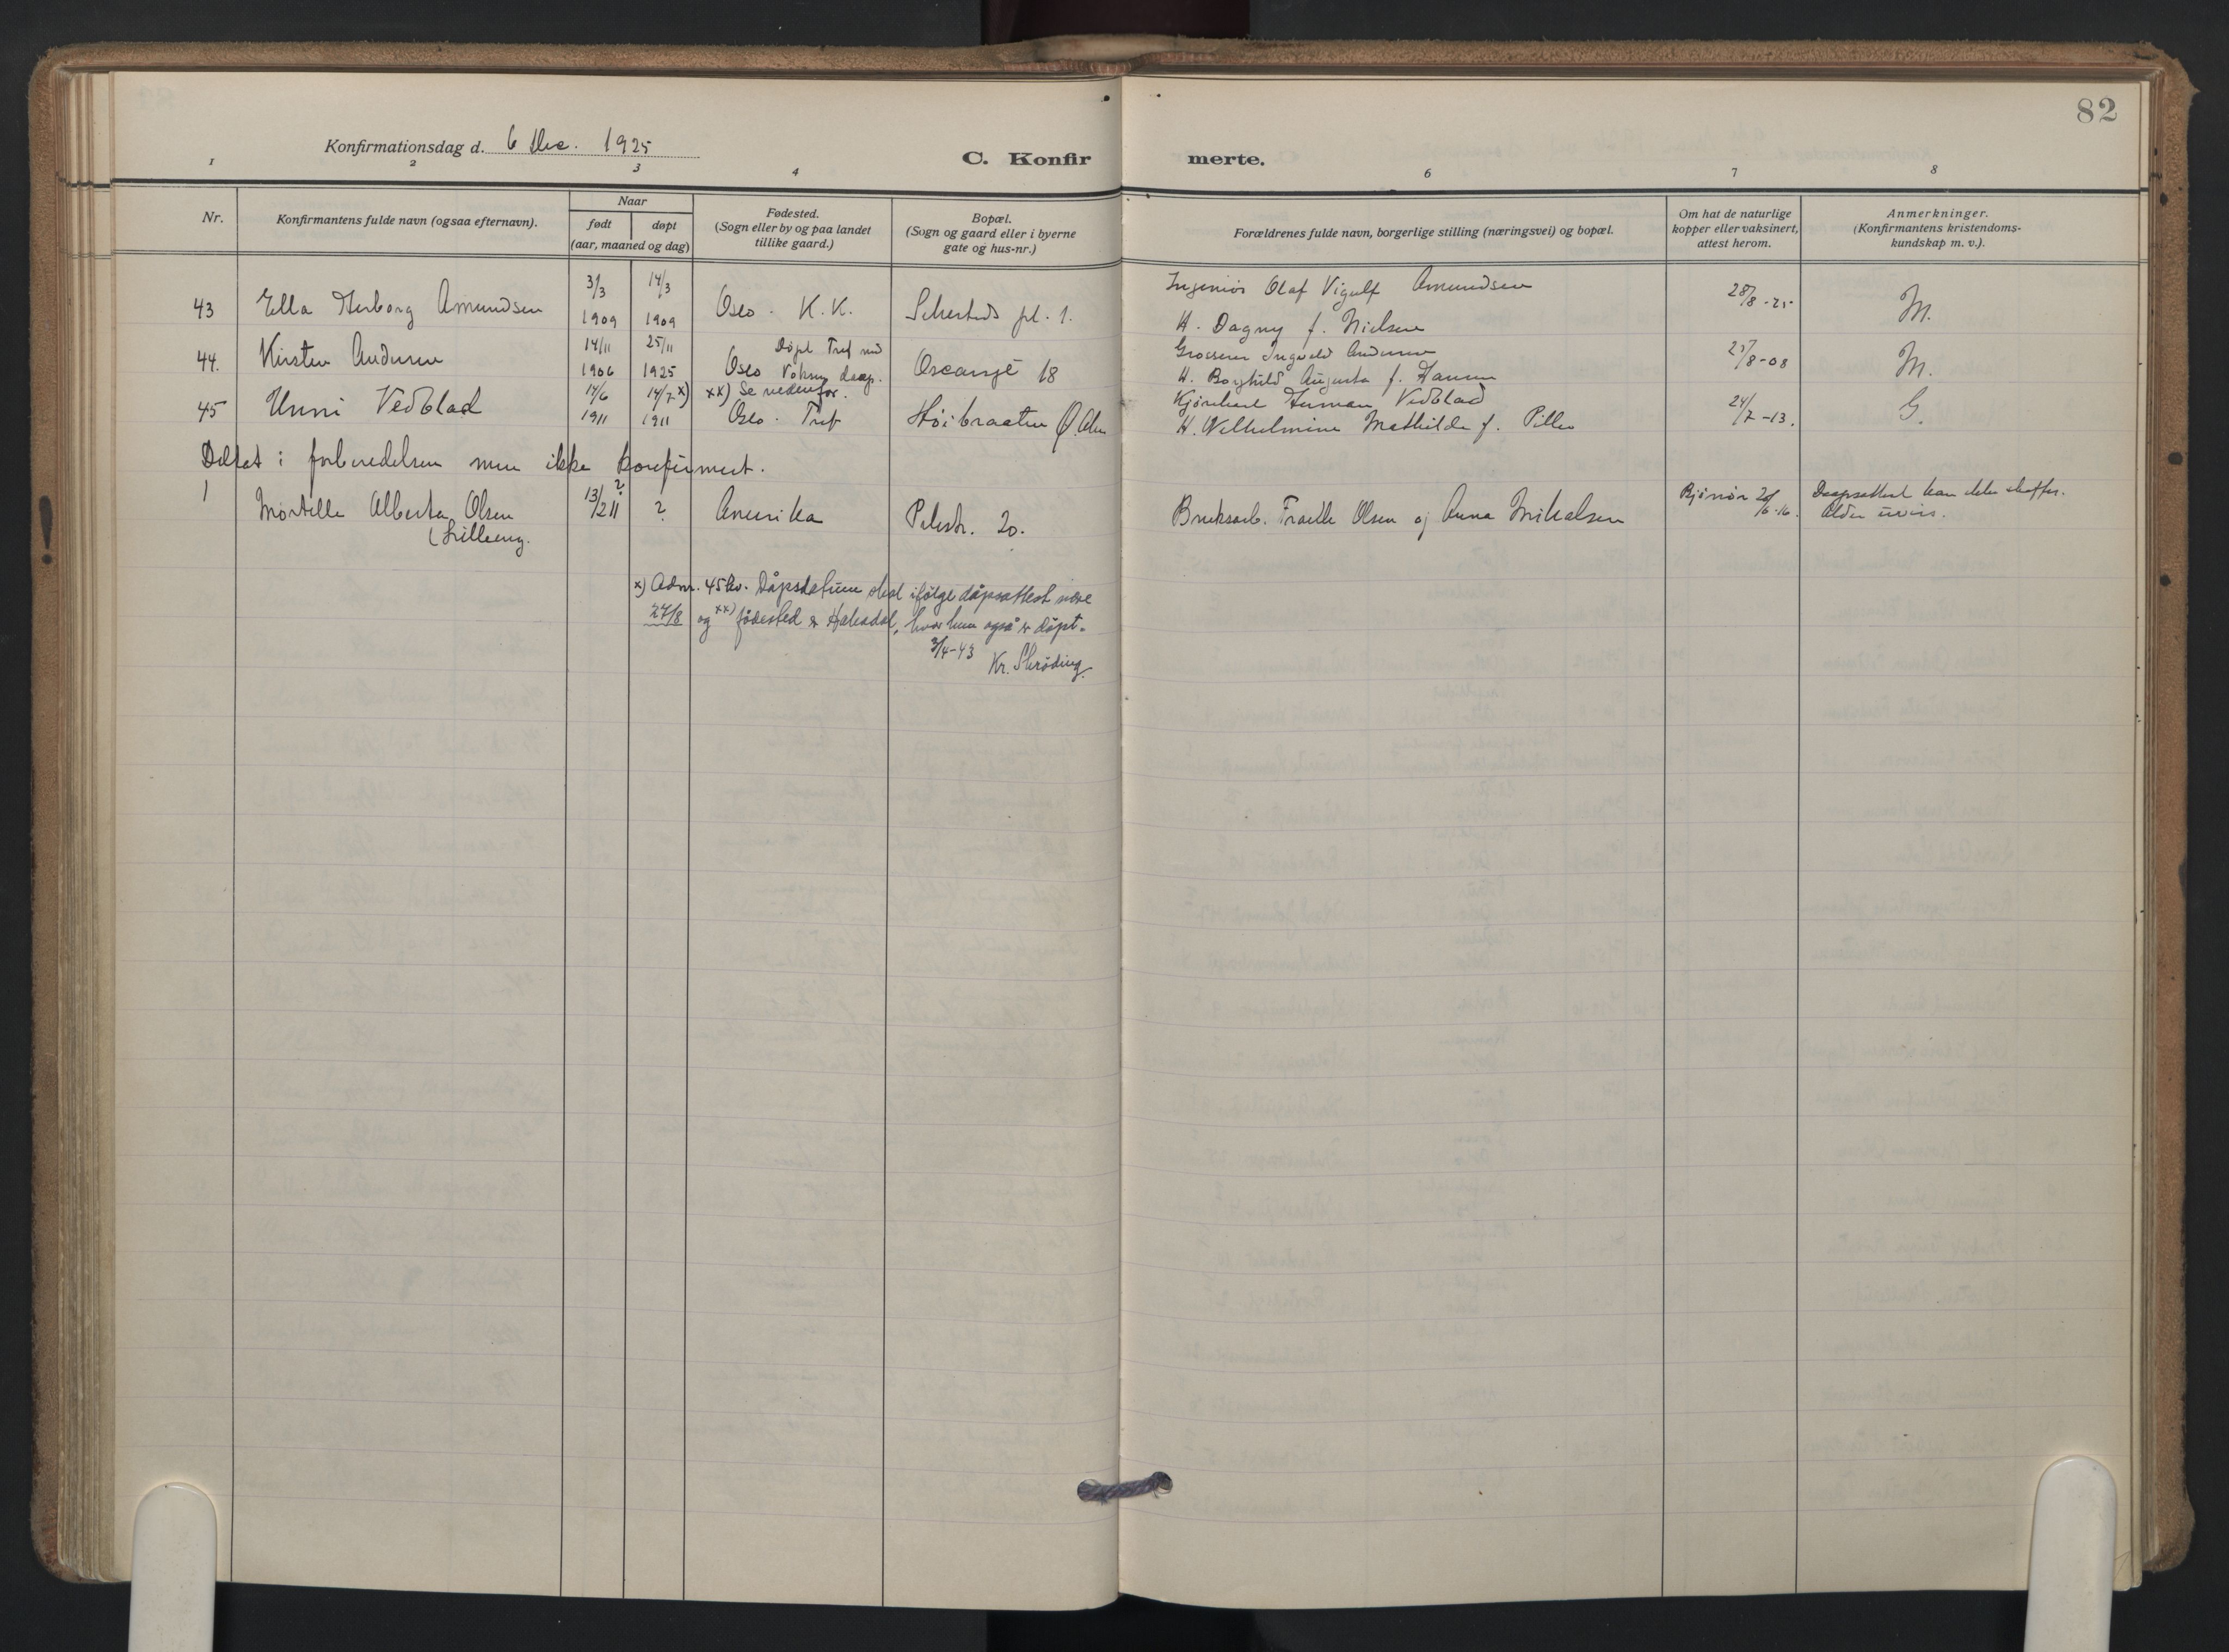 82
Konfirmationsdag d. 6 Dec. 1925
C. Konfirmerte.
1 2 3 4 6 7 8
Nr.
Konfirmantens fulde navn (ogsaa efternavn).
Naar
født døpt
(aar, maaned og dag)
Fødested.
(Sogn eller by og paa landet
tillike gaard.)
Bopæl.
(Sogn og gaard eller i byerne
gate og hus-nr.)
Forældrenes fulde navn, borgerlige stilling (næringsvei) og bopæl.
Om hat de naturlige
kopper eller vaksinert,
attest herom.
Anmerkninger.
(Konfirmantens kristendoms-
kundskap m. v.).
3/3 14/3 Ingeniør Olaf Vigulf Amundsen
43 Ella Herborg Amundsen 1909 1909 Oslo. K.K. Schesteds pl. 1. H. Dagny f. Nielsen 28/8-25 M.
14/11 25/11 Døpt Tref med Grosserer Ingvald Andersen
44. Kirsten Andersen 1906 1925 Oslo Voksen daap. Oscarsgt 18 H. Borghild Augusta f. Hansen /8-08 M.
14/6 14/7 x) xx) Se nedenfor. Herman Vedblad
45 Unni Vedblad 1911 1911 Oslo. Tref Høibraaten Ø. Aker H. Wilhelmine Mathilde f. Piller 24/7-13. G.
Deltat i forberedelsen men ikke konfirmert.
1 Albertha Olsen 13/2 11 ? ? Amerika Pilestr. 20. Bruksarb. Olsen og Anna Mikalsen 20/6-16. Daapsattest kan ikke skaffes.
(Lilleeng. Alder uviss.
x) Adnr. 45 kv. Dåpsdatum skal ifølge dåpsattest være
27/8 og xx) fødested er Hakadal, hvor hun også er døpt.
3/4-43 Kr. Skrøding.